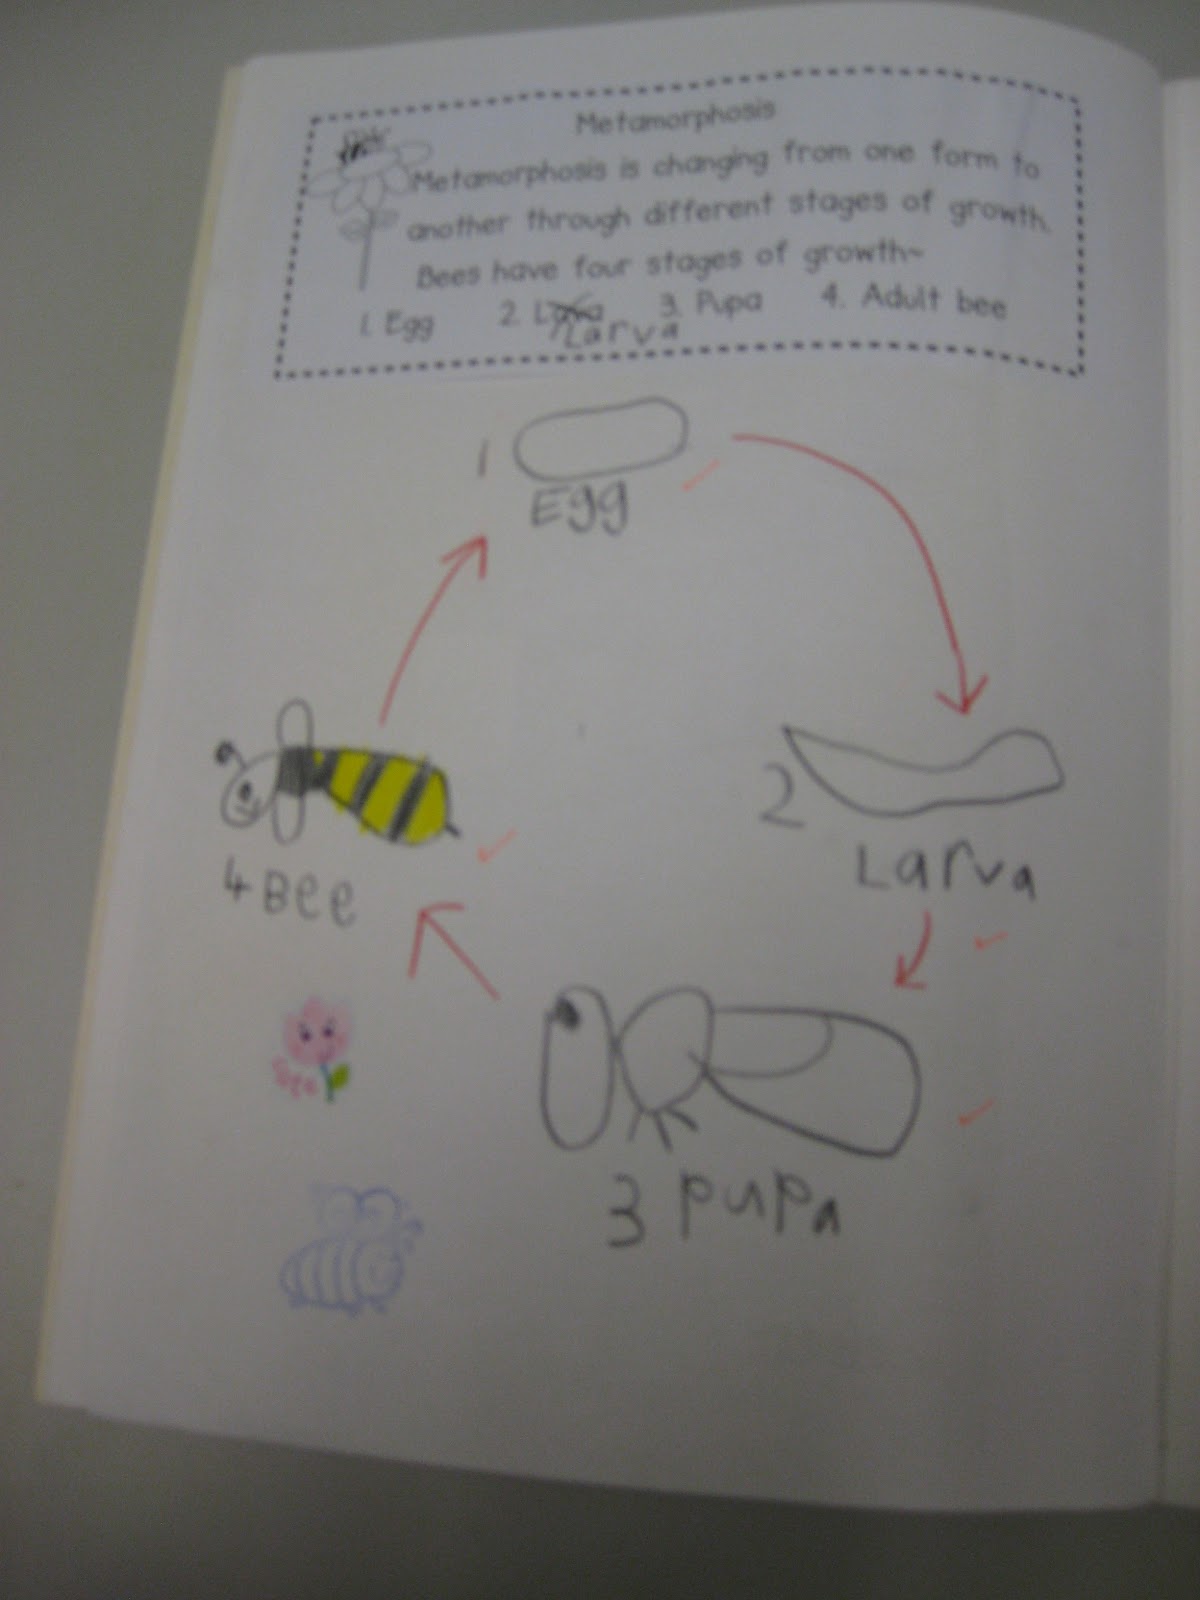 Metamorphosis
Metamorphosis is changing from one form to
another through different stages of growth.
Bees have four stages of growth~
1. Egg 2. Larva 3. Pupa 4. Adult bee
1
Egg
2
Larva
3 pupa
4 Bee